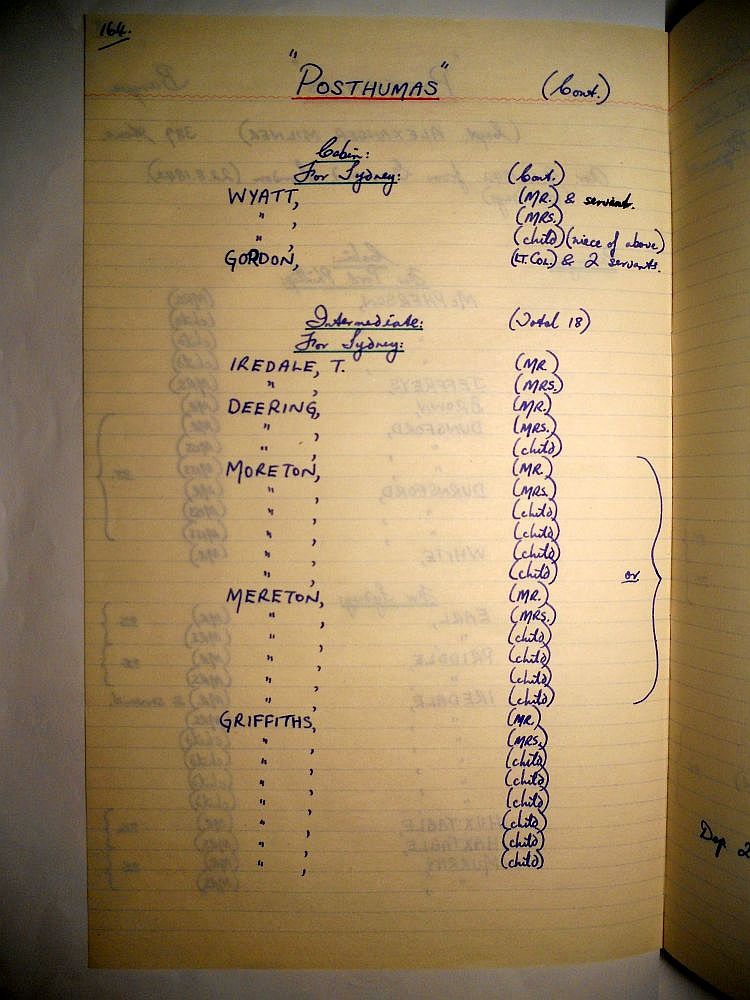 164.
"POSTHUMAS" (Cont.)
Cabin:
For Sydney: (Cont.)
WYATT, (MR.) & servant.
" , (MRS.)
" , (child) (niece of above)
GORDON, (LT. COL.) & 2 servants.
Intermediate: (Total 18)
For Sydney:
IREDALE, T. (MR.)
" , (MRS.)
DEERING, (MR.)
" , (MRS.)
" , (child)
MORETON, (MR.)
" , (MRS.)
" , (child)
" , (child)
" , (child)
" , (child) or
MERETON, (MR.)
" , (MRS.)
" , (child)
" , (child)
" , (child)
" , (child)
GRIFFITHS, (MR.)
" , (MRS.)
" , (child)
" , (child)
" , (child)
" , (child)
" , (child)
" , (child)
Dep 2